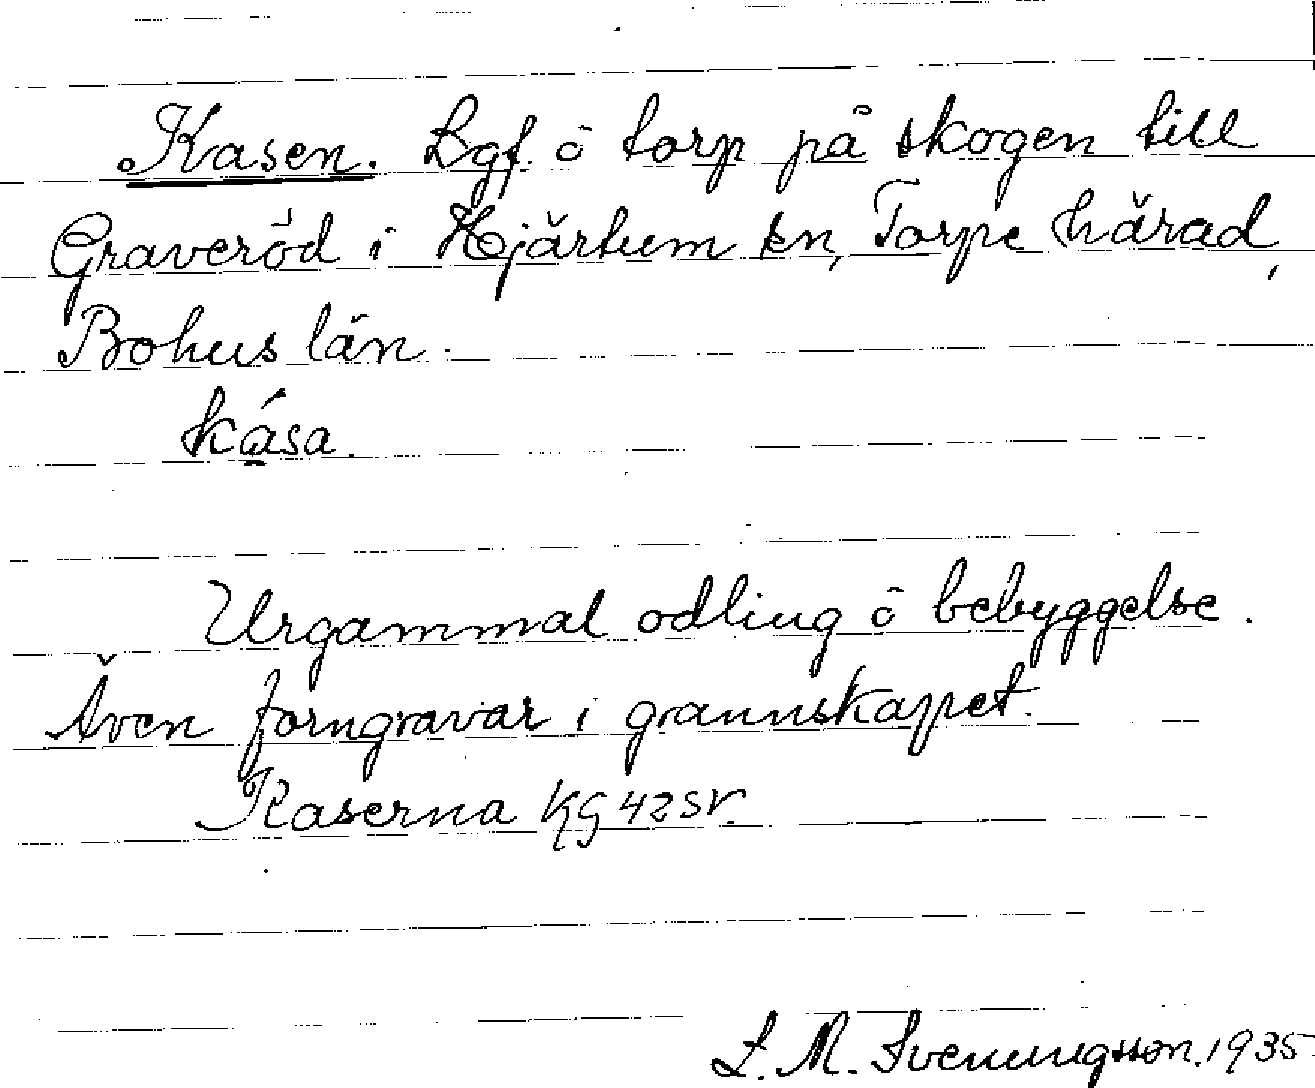 Kasen. Lgf. o torp på skogen till
Graveröd i Hjärtum sn, Torpe härad,
Bohus län.
kása.
Urgammal odling o bebyggelse.
Även forngravar i grannskapet.
Kaserna KG 42 SV.
L. M. Svenungsson. 1935